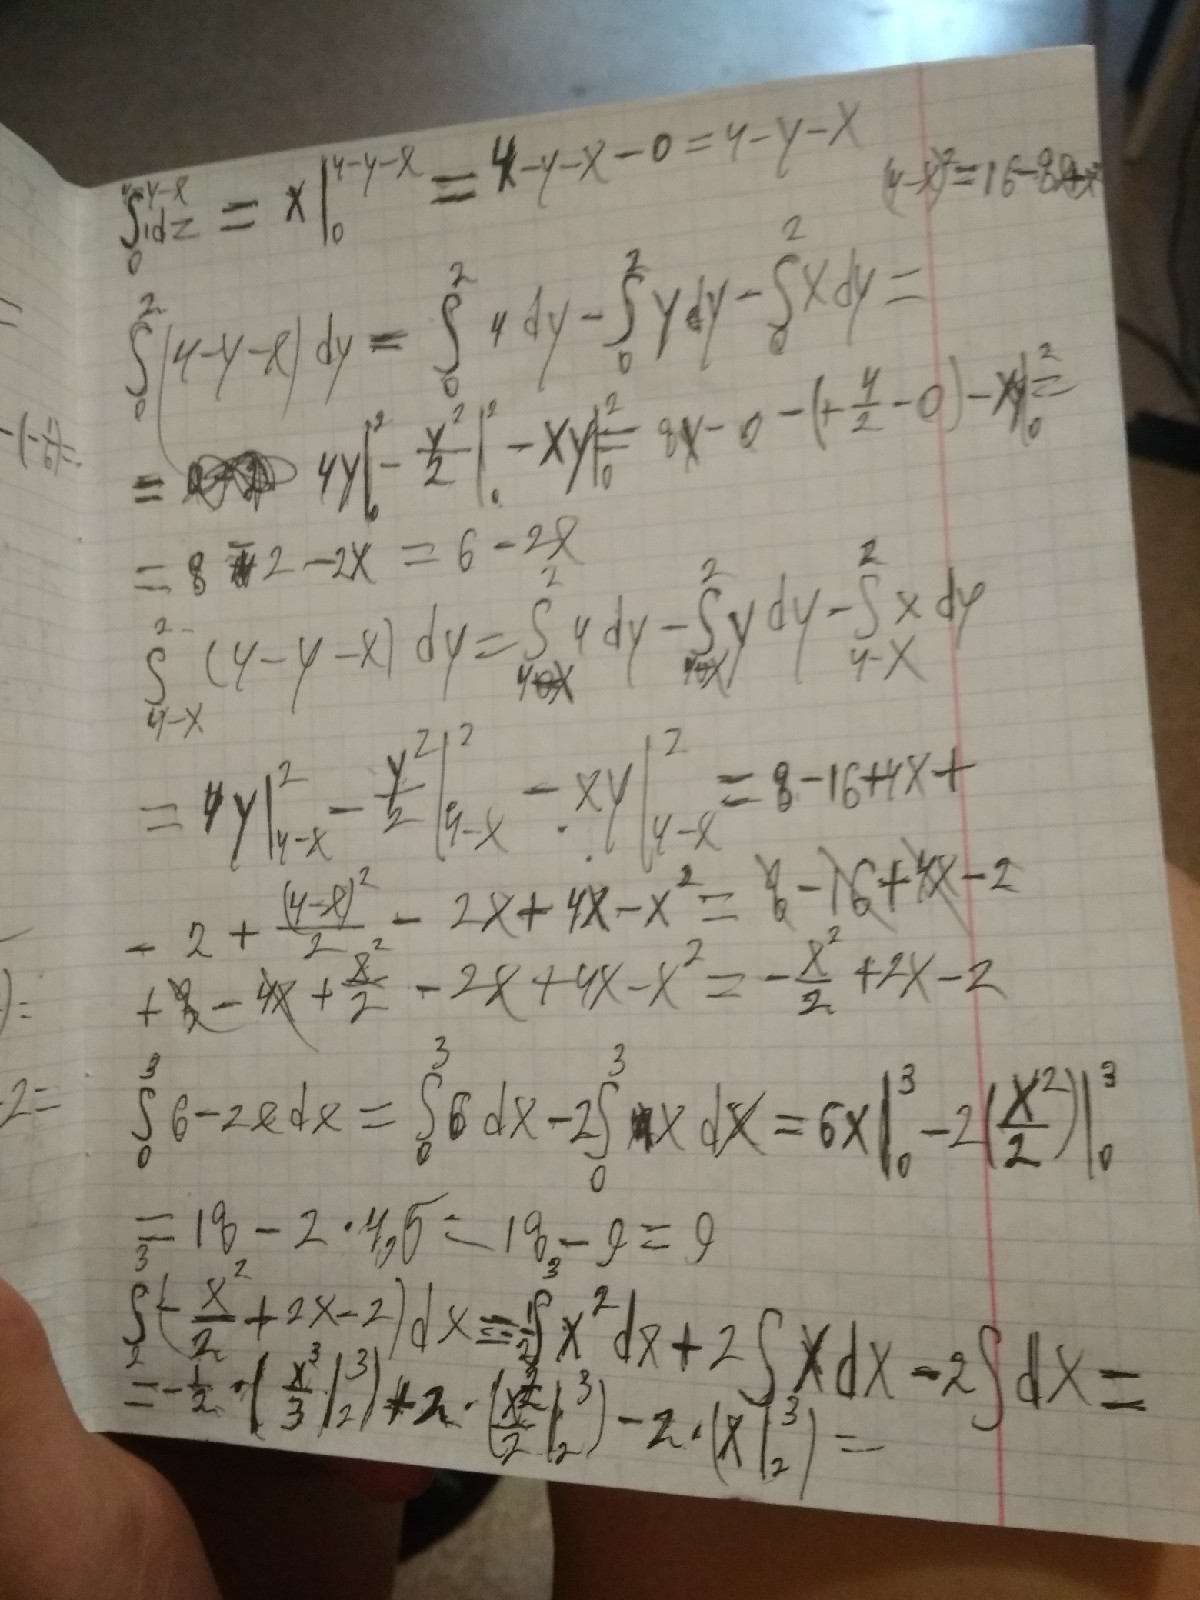 ∫₀^{4-y-x} 1dz = x|₀^{4-y-x} = 4-y-x-0 = 4-y-x
(4-x)² = 16-8x+x²
∫₀² (4-y-x) dy = ∫₀² 4 dy - ∫₀² y dy - ∫₀² x dy =
= 4y|₀² - y²/2|₀² - xy|₀² = 8x - 0 - (+4/2 - 0) - xy|₀² =
= 8 - 2 - 2x = 6 - 2x
∫_{4-x}² (4-y-x) dy = ∫_{4-x}² 4 dy - ∫_{4-x}² y dy - ∫_{4-x}² x dy
= 4y|_{4-x}² - y²/2|_{4-x}² - xy|_{4-x}² = 8-16+4x+
- 2 + (4-x)²/2 - 2x + 4x - x² = 8-16+4x-2
+ 8 - 4x + x²/2 - 2x + 4x - x² = - x²/2 + 2x - 2
∫₀³ 6-2x dx = ∫₀³ 6 dx - 2∫₀³ x dx = 6x|₀³ - 2(x²/2)|₀³
= 18 - 2·4,5 = 18 - 9 = 9
∫₂³ (- x²/2 + 2x - 2) dx = - 1/2 ∫₂³ x² dx + 2∫ x dx - 2∫ dx =
= - 1/2 · (x³/3|₂³) + 2 · (x²/2|₂³) - 2 · (x|₂³) =